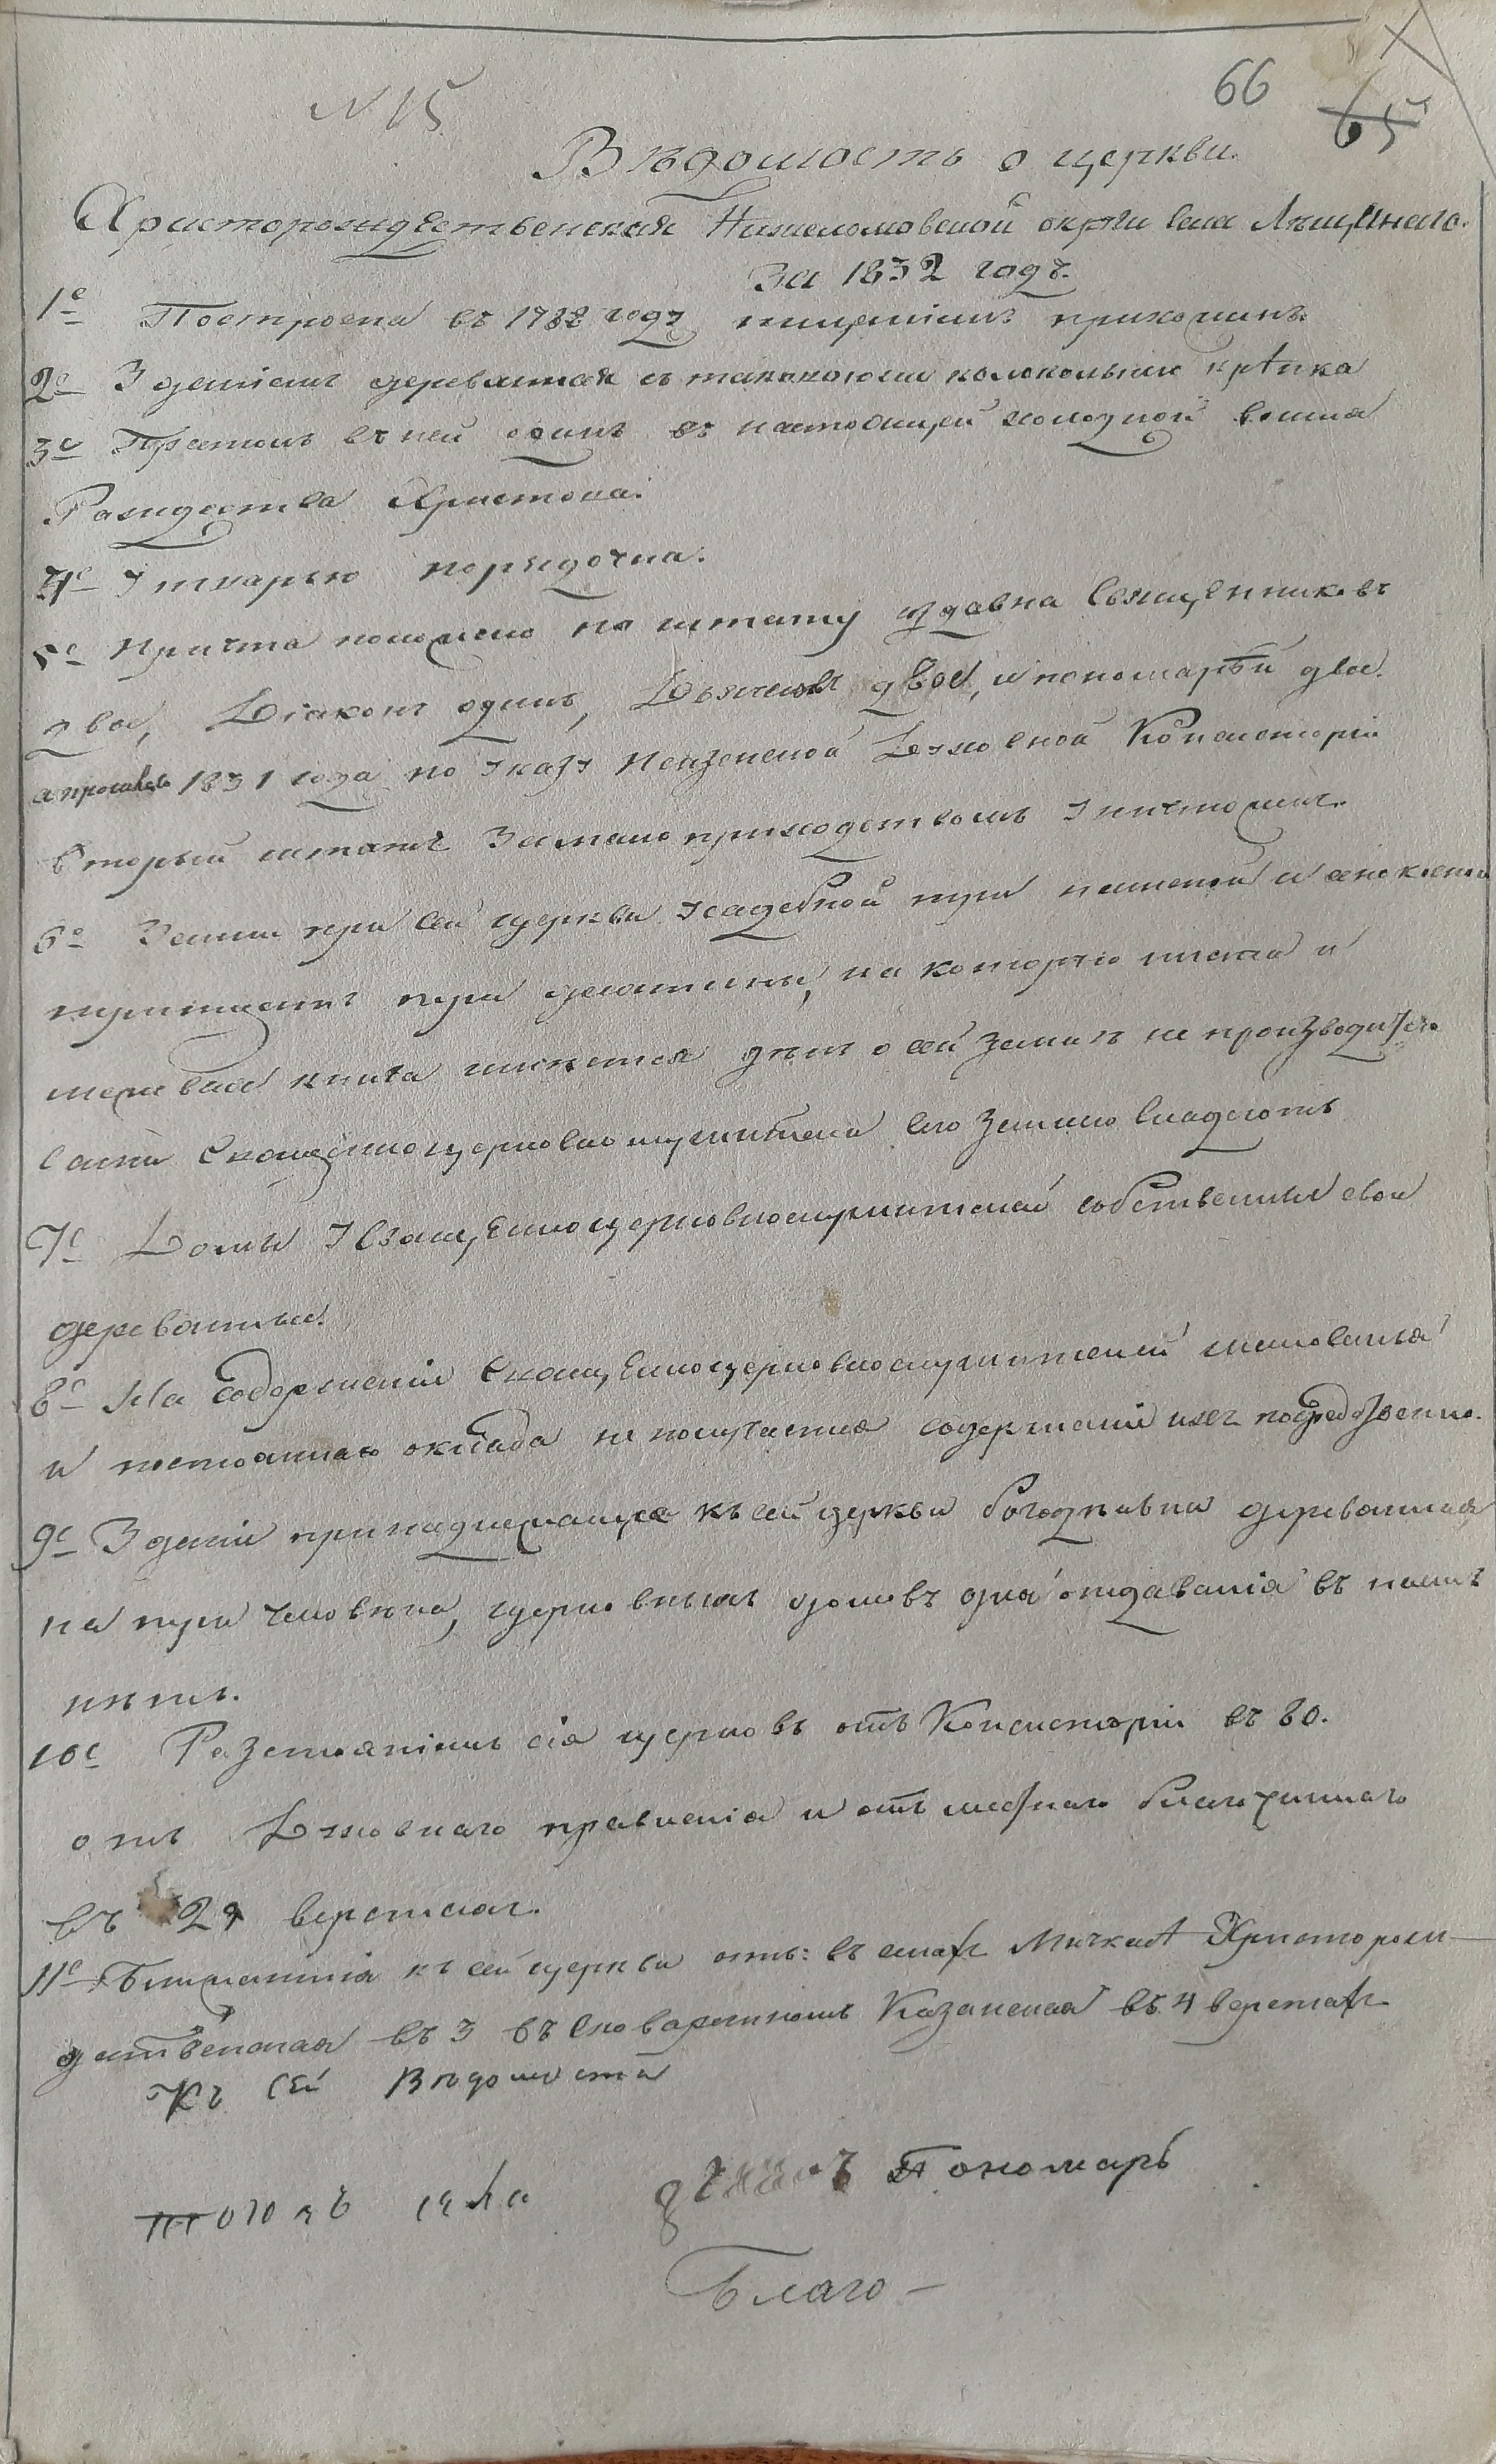 N 15
66
65
Вѣдомость о церкви.
Христорождественская Нижеломовской округи села Лѣщинаго.
За 1832 годъ.
1е Построена въ 1788 году тщаніемъ прихожанъ.
2е Зданіемъ деревянная съ таковоюжъ колокольнею крѣпка
3е Престолъ въ ней одинъ въ настоящей холодной во имя
Рождества Христова.
4е Утварью порядочна.
5е Причта положено по штату издавна Священниковъ
двое, Діаконъ одинъ, Дьячковъ двое, и пономарей двое.
а прошлаго 1831 года по указу Пензенской Духовной Консисторіи
вторый штатъ за малоприходствомъ уничтоженъ.
6е Земли при сей церкви усадебной три пашенной и сѣнокосной
тритцать три десятины, на которую планъ и
межевая книга имѣется дѣлъ о сей землѣ не производится
сами Священноцерковнослужители сею землею владеютъ
7е Домы у Священноцерковнослужителей собственныя свои
деревянныя.
8е На содержаніе Священноцерковнослужителей жалованья
и постояннаго оклада не получается содержаніе ихъ посредственно.
9е Зданіе принадлежащее къ сей церкви богодѣльна деревянная
на три человѣка, церковныхъ домовъ для отдаванія въ наемъ
нѣтъ.
10е Разстояніемъ сія церковь отъ Консисторіи въ 80.
отъ Духовнаго правленія и отъ местнаго благочиннаго
въ 24 верстахъ.
11е Ближаишія къ сей церкви отъ: въ селахъ Мичкасѣ Христорож-
дественская въ 3 въ Сковаретномъ Казанская въ 4 верстахъ
Къ сей Вѣдомости
тогожъ села Пономарь
Благо-